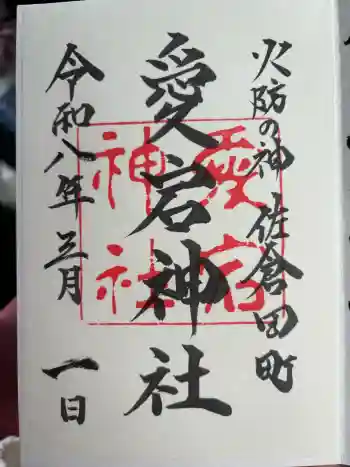 火防の神 佐倉田町
愛宕神社
愛宕
神社
令和八年三月 一日